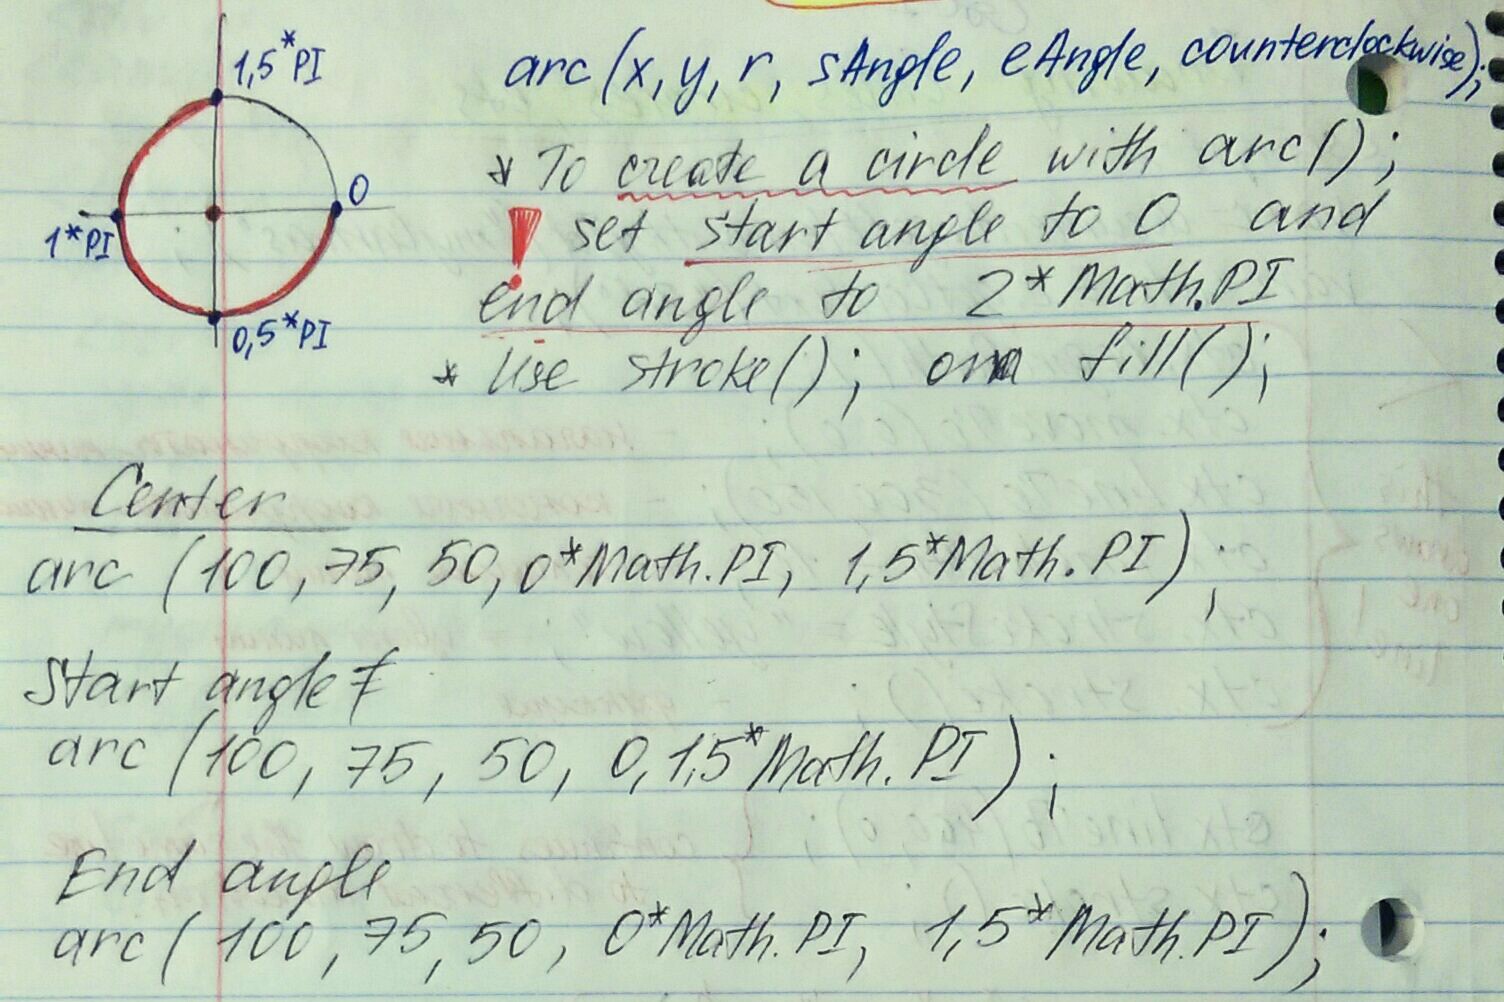 1,5*PI
0
1*PI
0,5*PI
arc(x, y, r, sAngle, eAngle, counterclockwise);
* To create a circle with arc();
! set start angle to 0 and
end angle to 2*Math.PI
* Use stroke(); or fill();
Center
arc (100, 75, 50, 0*Math.PI, 1,5*Math.PI);
Start angle
arc (100, 75, 50, 0, 1,5*Math.PI);
End angle
arc (100, 75, 50, 0*Math.PI, 1,5*Math.PI);